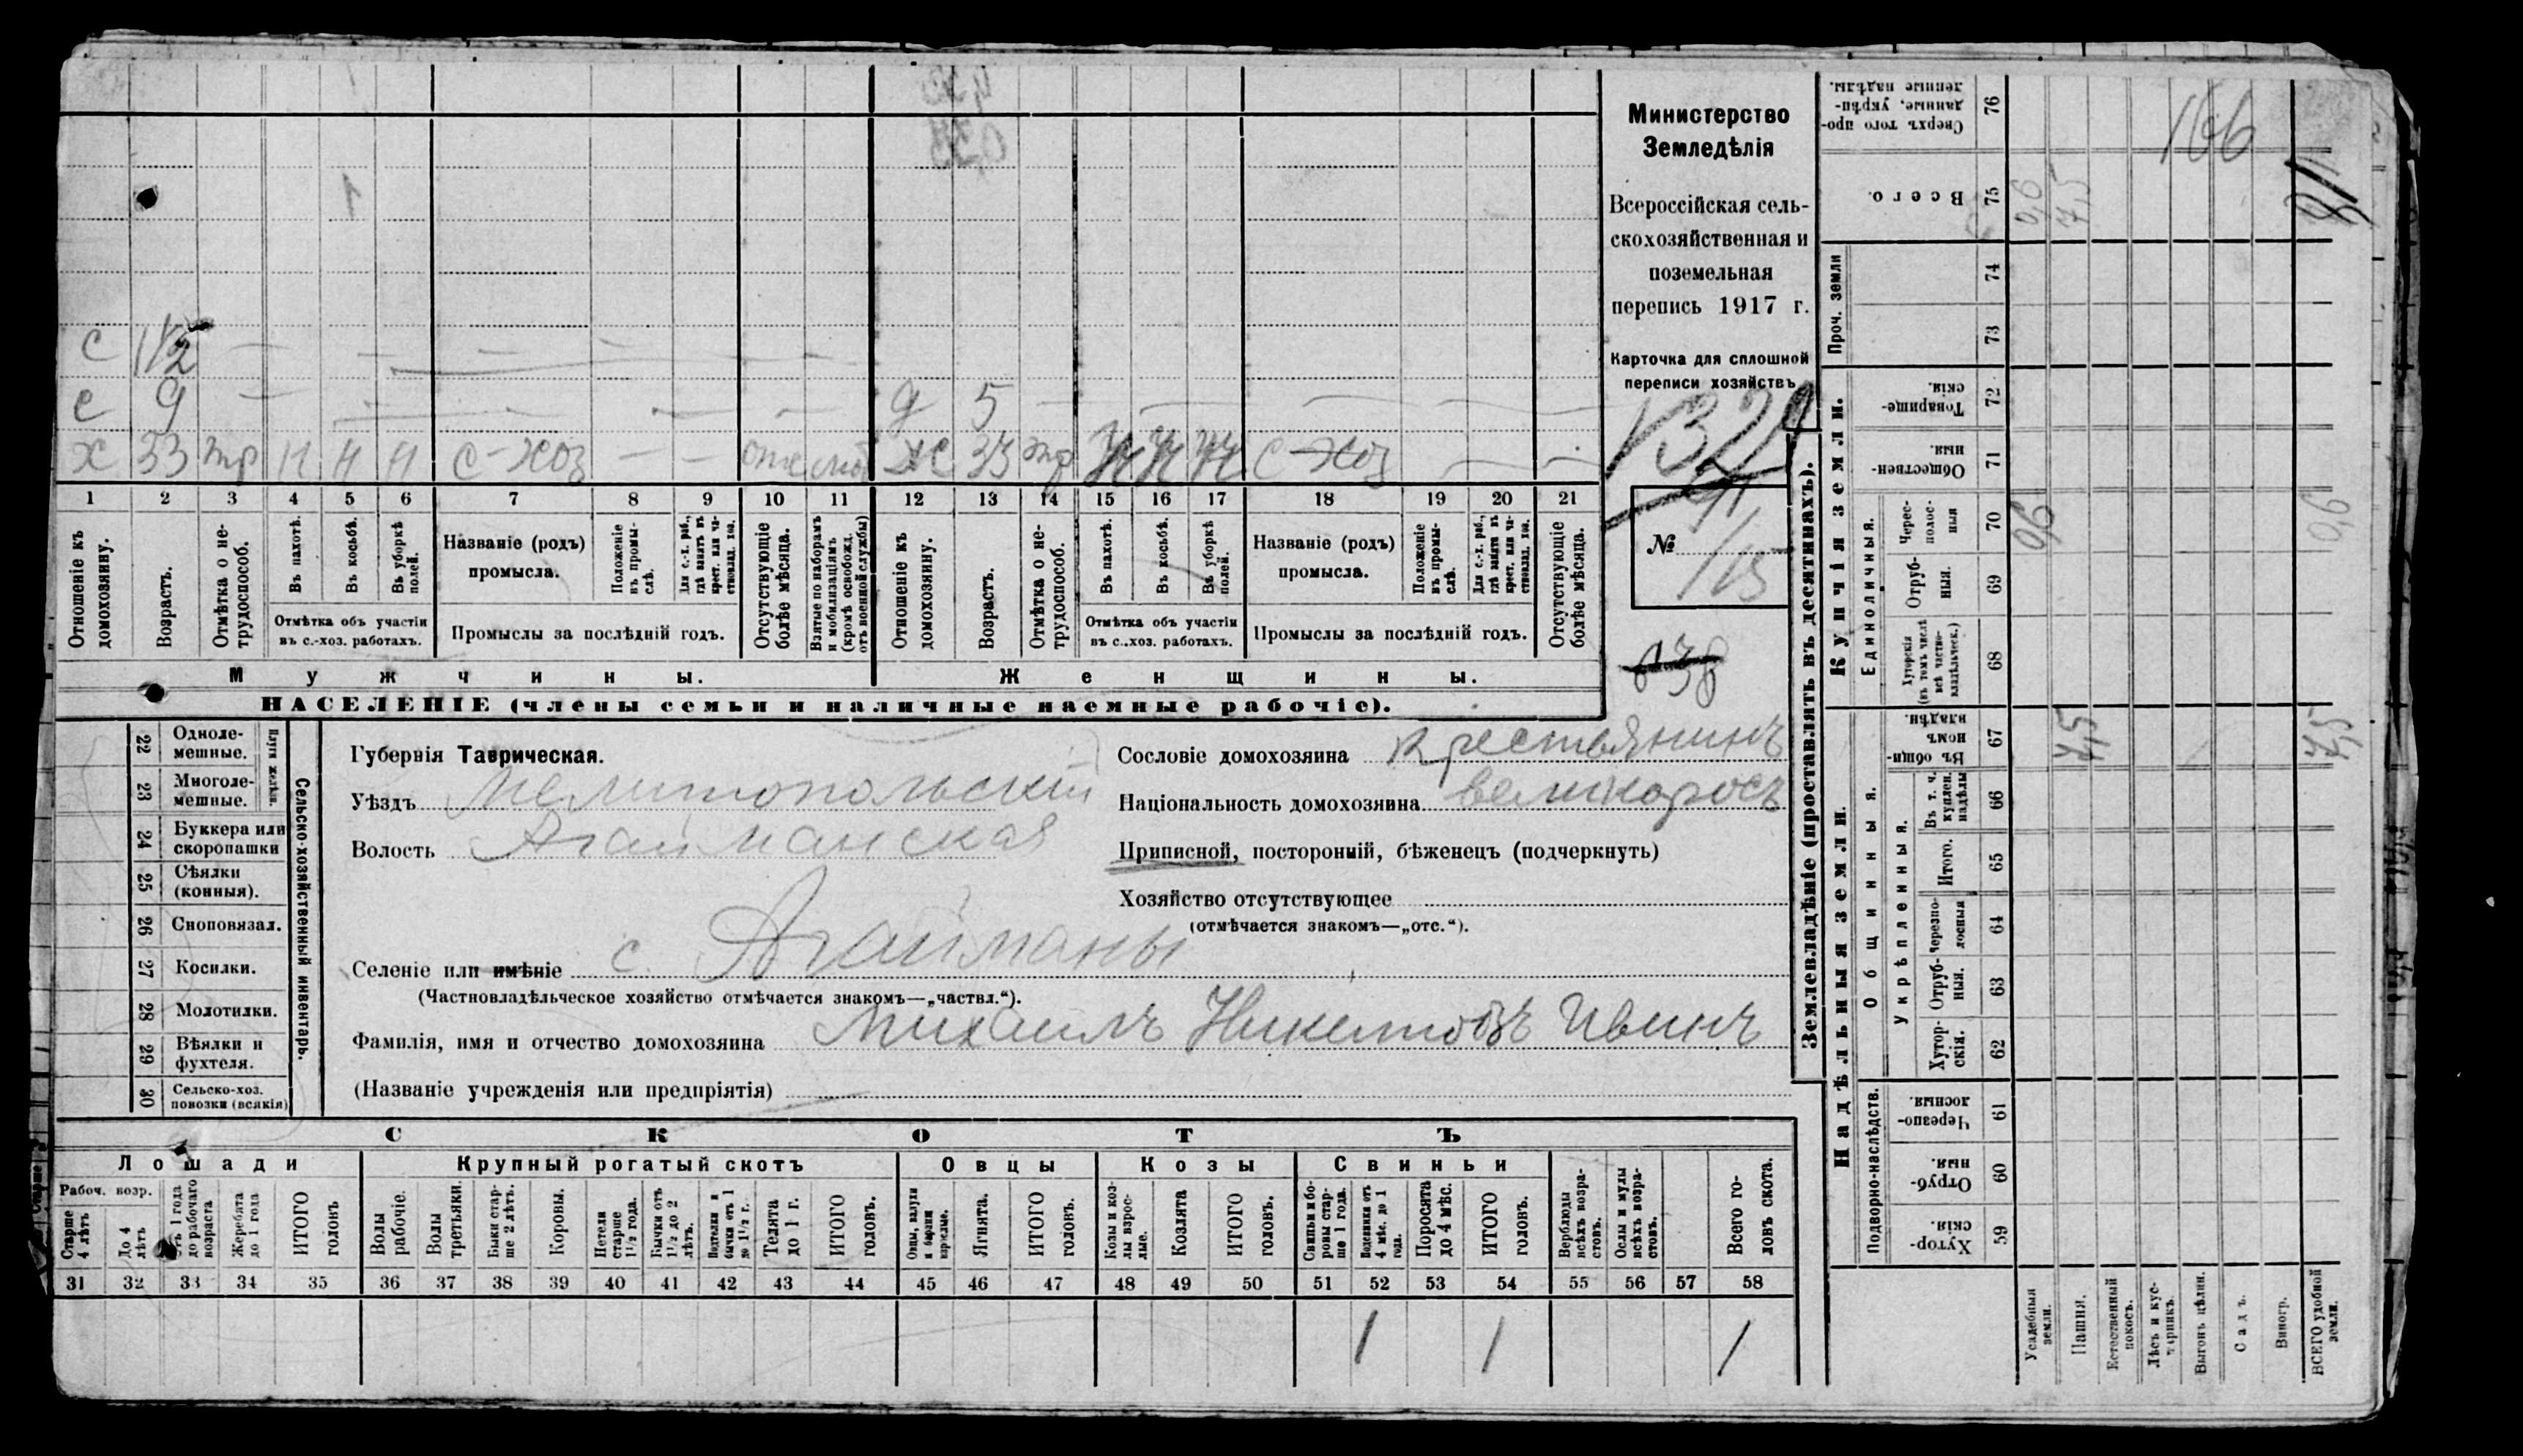 Министерство
Земледѣлія
Всероссійская сель-
скохозяйственная и
поземельная
перепись 1917 г.
Карточка для сплошной
переписи хозяйствъ
132
№
115
638
с 1 1/2
с 9 д 5
х 33 тр н н н с-хоз отс моб ж 33 тр с-хоз
1 2 3 4 5 6 7 8 9 10 11 12 13 14 15 16 17 18 19 20 21
Отношеніе къ домохозяину.
Возрастъ.
Отмѣтка о не-трудоспособ.
Въ пахотѣ.
Въ косьбѣ.
Въ уборкѣ полей.
Отмѣтка объ участіи въ с.-хоз. работахъ.
Названіе (родъ) промысла.
Положеніе въ промы-слѣ.
Для с.-х. раб., гдѣ занятъ въ крест. или ча-стновлад. хоз.
Промыслы за послѣдній годъ.
Отсутствующіе болѣе мѣсяца.
Взятые по наборамъ и мобилизаціямъ (кромѣ освобожд. отъ военной службы)
Отношеніе къ домохозяину.
Возрастъ.
Отмѣтка о не-трудоспособ.
Въ пахотѣ.
Въ косьбѣ.
Въ уборкѣ полей.
Отмѣтка объ участіи въ с..хоз. работахъ.
Названіе (родъ) промысла.
Положеніе въ промы-слѣ.
Для с.-х. раб., гдѣ занята въ крест. или ча-стновлад. хоз.
Промыслы за послѣдній годъ.
Отсутствующіе болѣе мѣсяца.
Мужчины.
Женщины.
НАСЕЛЕНІЕ (члены семьи и наличные наемные рабочіе).
Сельско-хозяйственный инвентарь.
Плуги желѣзн.
22 Одноле-мешные.
23 Многоле-мешные.
24 Буккера или скоропашки
25 Сѣялки (конныя).
26 Сноповязал.
27 Косилки.
28 Молотилки.
29 Вѣялки и фухтеля.
30 Сельско-хоз. повозки (всякія)
Губернія Таврическая.
Уѣздъ Мелитопольскій
Волость Агайманская
Сословіе домохозяина крестьянинъ
Національность домохозяина великоросъ
Приписной, посторонній, бѣженецъ (подчеркнуть)
Хозяйство отсутствующее
(отмѣчается знакомъ—„отс.“).
Селеніе или имѣніе с. Агайманы
(Частновладѣльческое хозяйство отмѣчается знакомъ—„частвл.“).
Фамилія, имя и отчество домохозяина Михаилъ Никитовъ Ивинъ
(Названіе учрежденія или предпріятія)
СКОТЪ
Лошади
Крупный рогатый скотъ
Овцы
Козы
Свиньи
Рабоч. возр.
Старше 4 лѣтъ
До 4 лѣтъ
Отъ 1 года до рабочаго возраста
Жеребята до 1 года
ИТОГО головъ
Волы рабочіе.
Волы третьяки.
Быки стар-ше 2 лѣтъ.
Коровы.
Нетели старше 1½ года.
Бычки отъ 1½ до 2 лѣтъ.
Подтелки и бычки отъ 1 до 1½ г.
Телята до 1 г.
ИТОГО головъ.
Овцы, валухи и бараны взрослые.
Ягнята.
ИТОГО головъ.
Козы и коз-лы взрос-лые.
Козлята
ИТОГО головъ.
Свиньи и бо-ровы стар-ше 1 года.
Подсвинки отъ 4 мѣс. до 1 года.
Поросята до 4 мѣс.
ИТОГО головъ.
Верблюды всѣхъ возра-стовъ.
Ослы и мулы всѣхъ возра-стовъ.
Всего го-ловъ скота.
31 32 33 34 35 36 37 38 39 40 41 42 43 44 45 46 47 48 49 50 51 52 53 54 55 56 57 58
1 1 1
Землевладѣніе (проставлять въ десятинахъ).
Купчія земли.
Надѣльныя земли.
Сверхъ того про-данные, укрѣп-ленные надѣлы. 76
Всего. 75
Проч. земли 74 73
Товарище-скія. 72
Обществен-ныя. 71
Единоличныя.
Черес-полос-ныя 70
Отруб-ныя. 69
Хуторскія (въ томъ числѣ всѣ частно-владѣльческ.) 68
Общинныя.
Въ общин-номъ владѣн. 67
Укрѣпленныя.
Въ т. ч. куплен. надѣлы 66
Итого. 65
Черезпо-лосныя 64
Отруб-ныя. 63
Хутор-скія. 62
Подворно-наслѣдств.
Черезпо-лосныя. 61
Отруб-ныя. 60
Хутор-скія. 59
Усадебныя земли.
Пашня.
Естественный покосъ.
Лѣсъ и кус-тарникъ.
Выгонъ цѣлин.
Садъ.
Виногр.
ВСЕГО удобной земли.
166
0,6
7,5
0,6
0,6
7,5
7,5